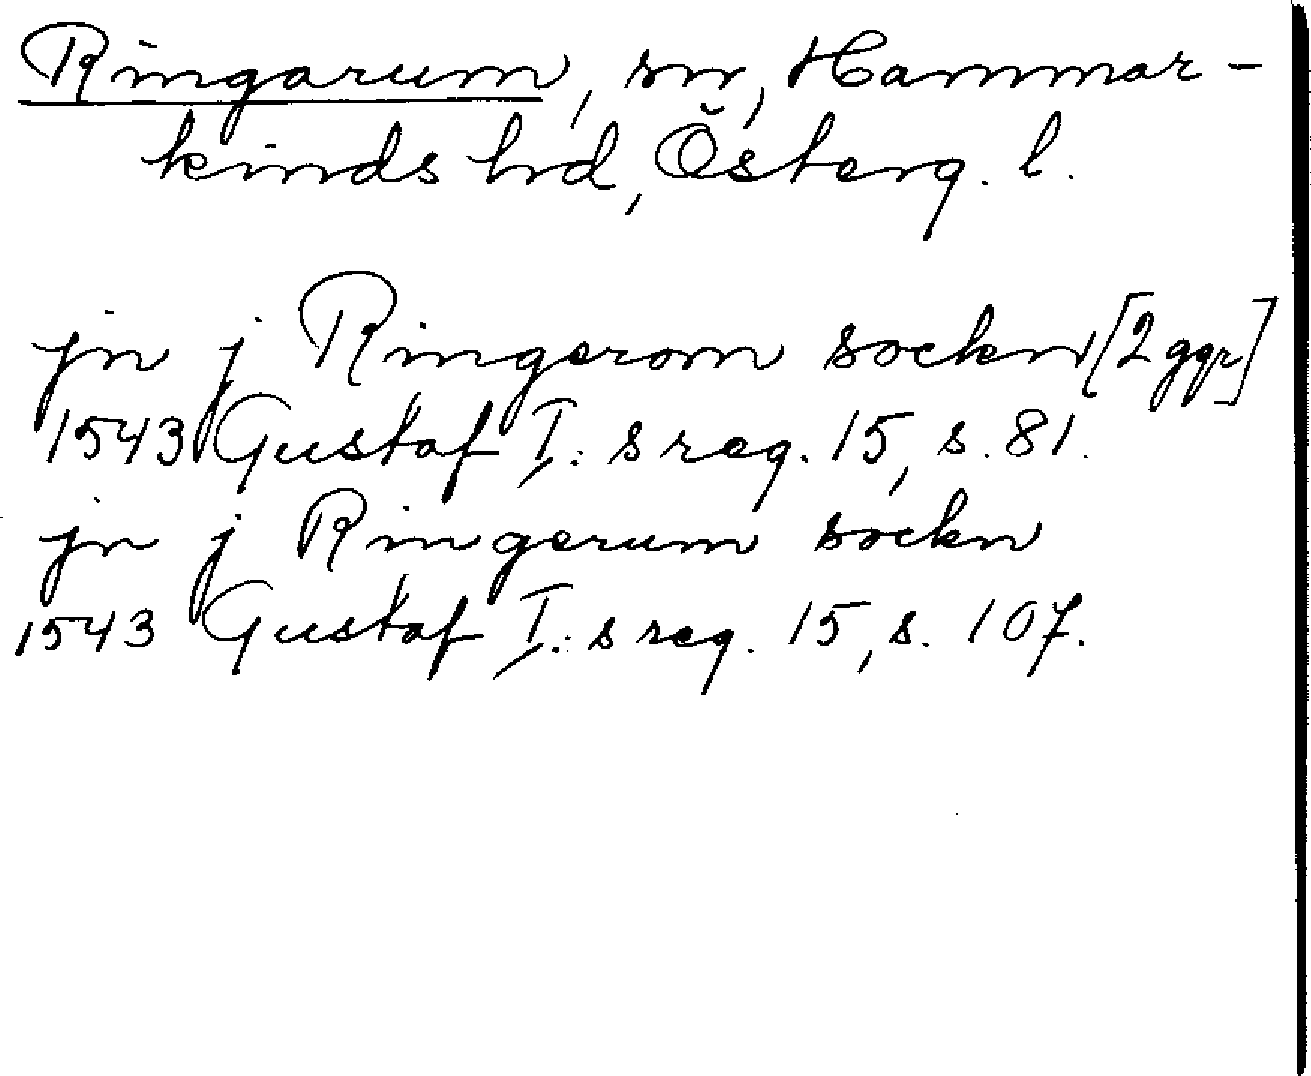 Ringarum, sn, Hammar-
kinds hd, Österg. l.
jn j Ringerom sockn [2 ggr]
1543 Gustaf I:s reg. 15, s. 81.
jn j Ringerum sockn
1543 Gustaf I:s reg. 15, s. 107.